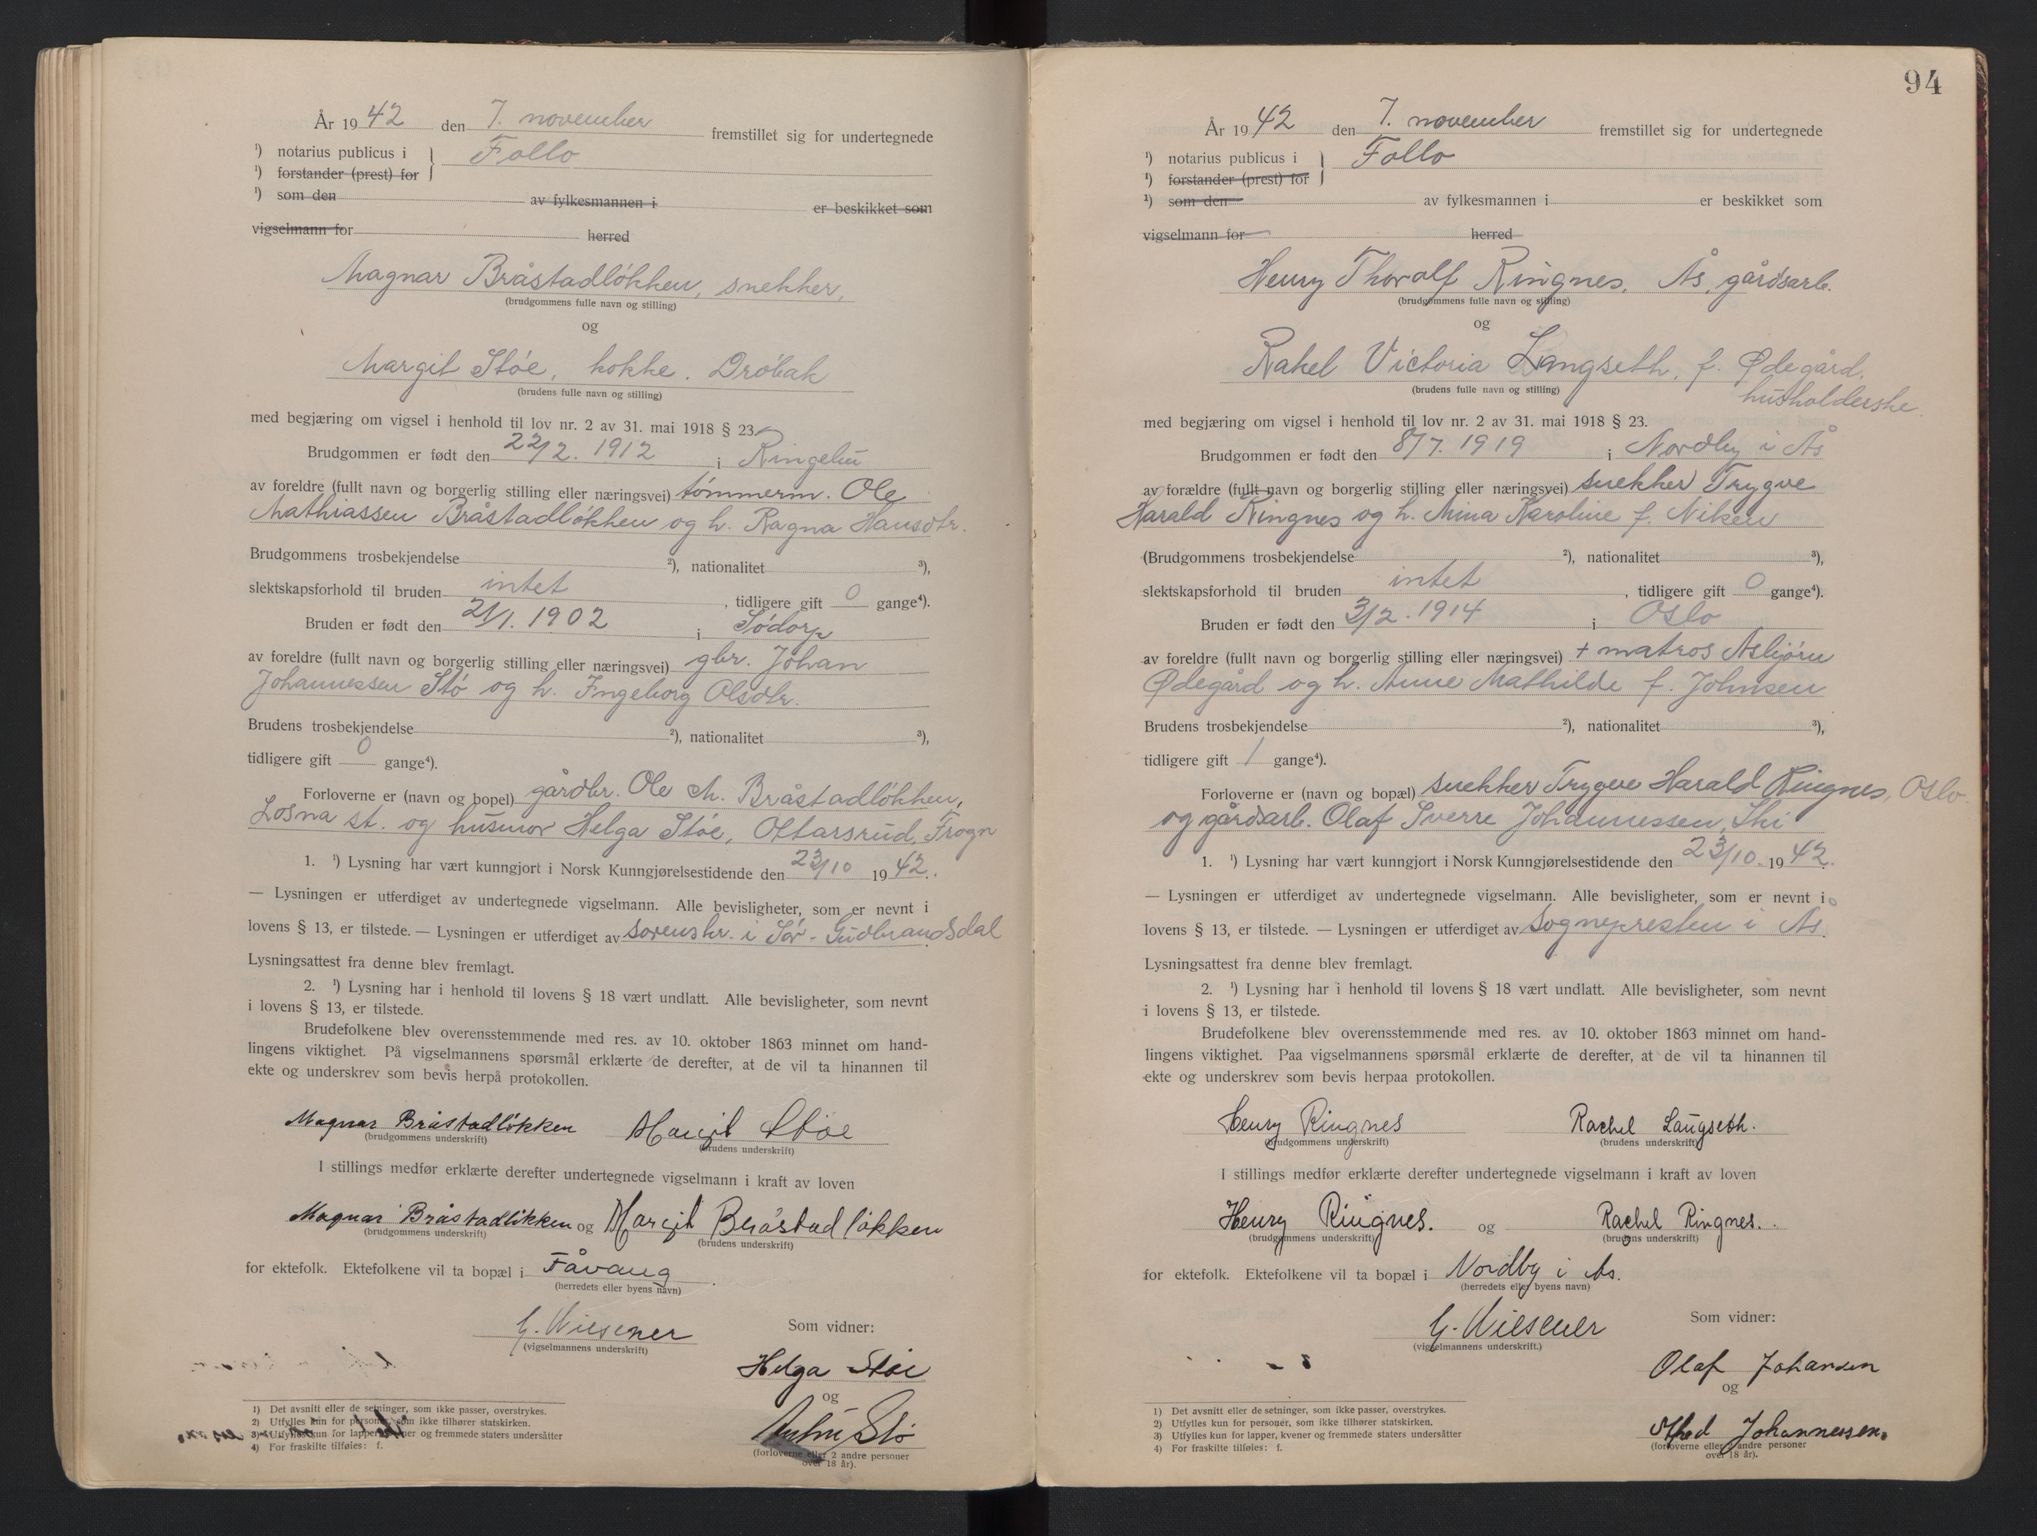 År 1942 den 7. november fremstillet sig for undertegnede
¹) notarius publicus i } Follo
¹) forstander (prest) for
¹) som den av fylkesmannen i er beskikket som
vigselmann for herred
Magnar Bråstadløkken, snekker,
(brudgommens fulle navn og stilling)
og
Margit Støe, kokke. Drøbak
(brudens fulle navn og stilling)
med begjæring om vigsel i henhold til lov nr. 2 av 31. mai 1918 § 23.
Brudgommen er født den 22/2. 1912 i Ringebu
av foreldre (fullt navn og borgerlig stilling eller næringsvei) tømmerm. Ole
Mathiassen Bråstadløkken og h. Ragna Hansdtr.
Brudgommens trosbekjendelse ²), nationalitet ³),
slektskapsforhold til bruden intet, tidligere gift 0 gange⁴).
Bruden er født den 2/1. 1902 i Sødorp
av foreldre (fullt navn og borgerlig stilling eller næringsvei) gbr. Johan
Johannessen Stø og h. Ingeborg Olsdtr.
Brudens trosbekjendelse ²), nationalitet ³),
tidligere gift 0 gange⁴).
Forloverne er (navn og bopel) gårdbr. Ole M. Bråstadløkken,
Losna st. og husmor Helga Støe, Ottarsrud, Frogn
1. ¹) Lysning har vært kunngjort i Norsk Kunngjørelsestidende den 23/10 1942.
— Lysningen er utferdiget av undertegnede vigselmann. Alle bevisligheter, som er nevnt i
lovens § 13, er tilstede. — Lysningen er utferdiget av sorenskr. i Sør-Gudbrandsdal
Lysningsattest fra denne blev fremlagt.
2. ¹) Lysning har i henhold til lovens § 18 vært undlatt. Alle bevisligheter, som nevnt
i lovens § 13, er tilstede.
Brudefolkene blev overensstemmende med res. av 10. oktober 1863 minnet om hand-
lingens viktighet. På vigselmannens spørsmål erklærte de derefter, at de vil ta hinannen til
ekte og underskrev som bevis herpå protokollen.
Magnar Bråstadløkken Margit Støe
(brudgommens underskrift) (brudens underskrift)
I stillings medfør erklærte derefter undertegnede vigselmann i kraft av loven
Magnar Bråstadløkken og Margit Bråstadløkken
(brudgommens underskrift) (brudens underskrift)
for ektefolk. Ektefolkene vil ta bopæl i Fåvang
(herredets eller byens navn)
G. Wiesener Som vidner:
(vigselmannens underskrift)
Helga Støe
og
Stø
(forloverne eller 2 andre personer
over 18 år).
1) Det avsnitt eller de setninger, som ikke passer, overstrykes.
2) Utfylles kun for personer, som ikke tilhører statskirken.
3) Utfylles kun for lapper, kvener og fremmede staters undersåtter
4) For fraskilte tilføies: f.
94
År 1942 den 7. november fremstillet sig for undertegnede
¹) notarius publicus i } Follo
¹) forstander (prest) for
¹) som den av fylkesmannen i er beskikket som
vigselmann for herred
Henry Thoralf Ringnes, Ås, gårdsarb.
(brudgommens fulle navn og stilling)
og
Rakel Victoria Langseth, f. Ødegård,
husholderske.
(brudens fulle navn og stilling)
med begjæring om vigsel i henhold til lov nr. 2 av 31. mai 1918 § 23.
Brudgommen er født den 8/7. 1919 i Nordby i Ås
av forældre (fullt navn og borgerlig stilling eller næringsvei) snekker Trygve
Harald Ringnes og h. Mina Karoline f. Nilsen
(Brudgommens trosbekjendelse ²), nationalitet ³),
slektskapsforhold til bruden intet, tidligere gift 0 gange⁴).
Bruden er født den 3/2. 1914 i Oslo
av foreldre (fullt navn og borgerlig stilling eller næringsvei) + matros Asbjørn
Ødegård og h. Anne Mathilde f. Johnsen
Brudens trosbekjendelse ²), nationalitet ³),
tidligere gift 1 gange⁴).
Forloverne er (navn og bopæl) snekker Trygve Harald Ringnes, Oslo
og gårdsarb. Olaf Sverre Johannessen, Ski
1. ¹) Lysning har vært kunngjort i Norsk Kunngjørelsestidende den 23/10. 1942.
— Lysningen er utferdiget av undertegnede vigselmann. Alle bevisligheter, som er nevnt i
lovens § 13, er tilstede. — Lysningen er utferdiget av Sognepresten i Ås.
Lysningsattest fra denne blev fremlagt.
2. ¹) Lysning har i henhold til lovens § 18 vært undlatt. Alle bevisligheter, som nevnt
i lovens § 13, er tilstede.
Brudefolkene blev overensstemmende med res. av 10. oktober 1863 minnet om hand-
lingens viktighet. Paa vigselmannens spørsmål erklærte de derefter, at de vil ta hinannen til
ekte og underskrev som bevis herpaa protokollen.
Henry Ringnes Rachel Langseth.
(brudgommens underskrift) (brudens underskrift)
I stillings medfør erklærte derefter undertegnede vigselmann i kraft av loven
Henry Ringnes. og Rachel Ringnes.
(brudgommens underskrift) (brudens underskrift)
for ektefolk. Ektefolkene vil ta bopæl i Nordby i Ås.
(herredets eller byens navn)
G. Wiesener Som vidner:
(vigselmannens underskrift.)
Olaf Johansen
og
Johannessen.
(forloverne eller 2 andre personer
over 18 år).
1) Det avsnitt eller de setninger, som ikke passer, overstrykes.
2) Utfylles kun for personer, som ikke tilhører statskirken.
3) Utfylles kun for lapper, kvener og fremmede staters undersåtter
4) For fraskilte tilføies: f.